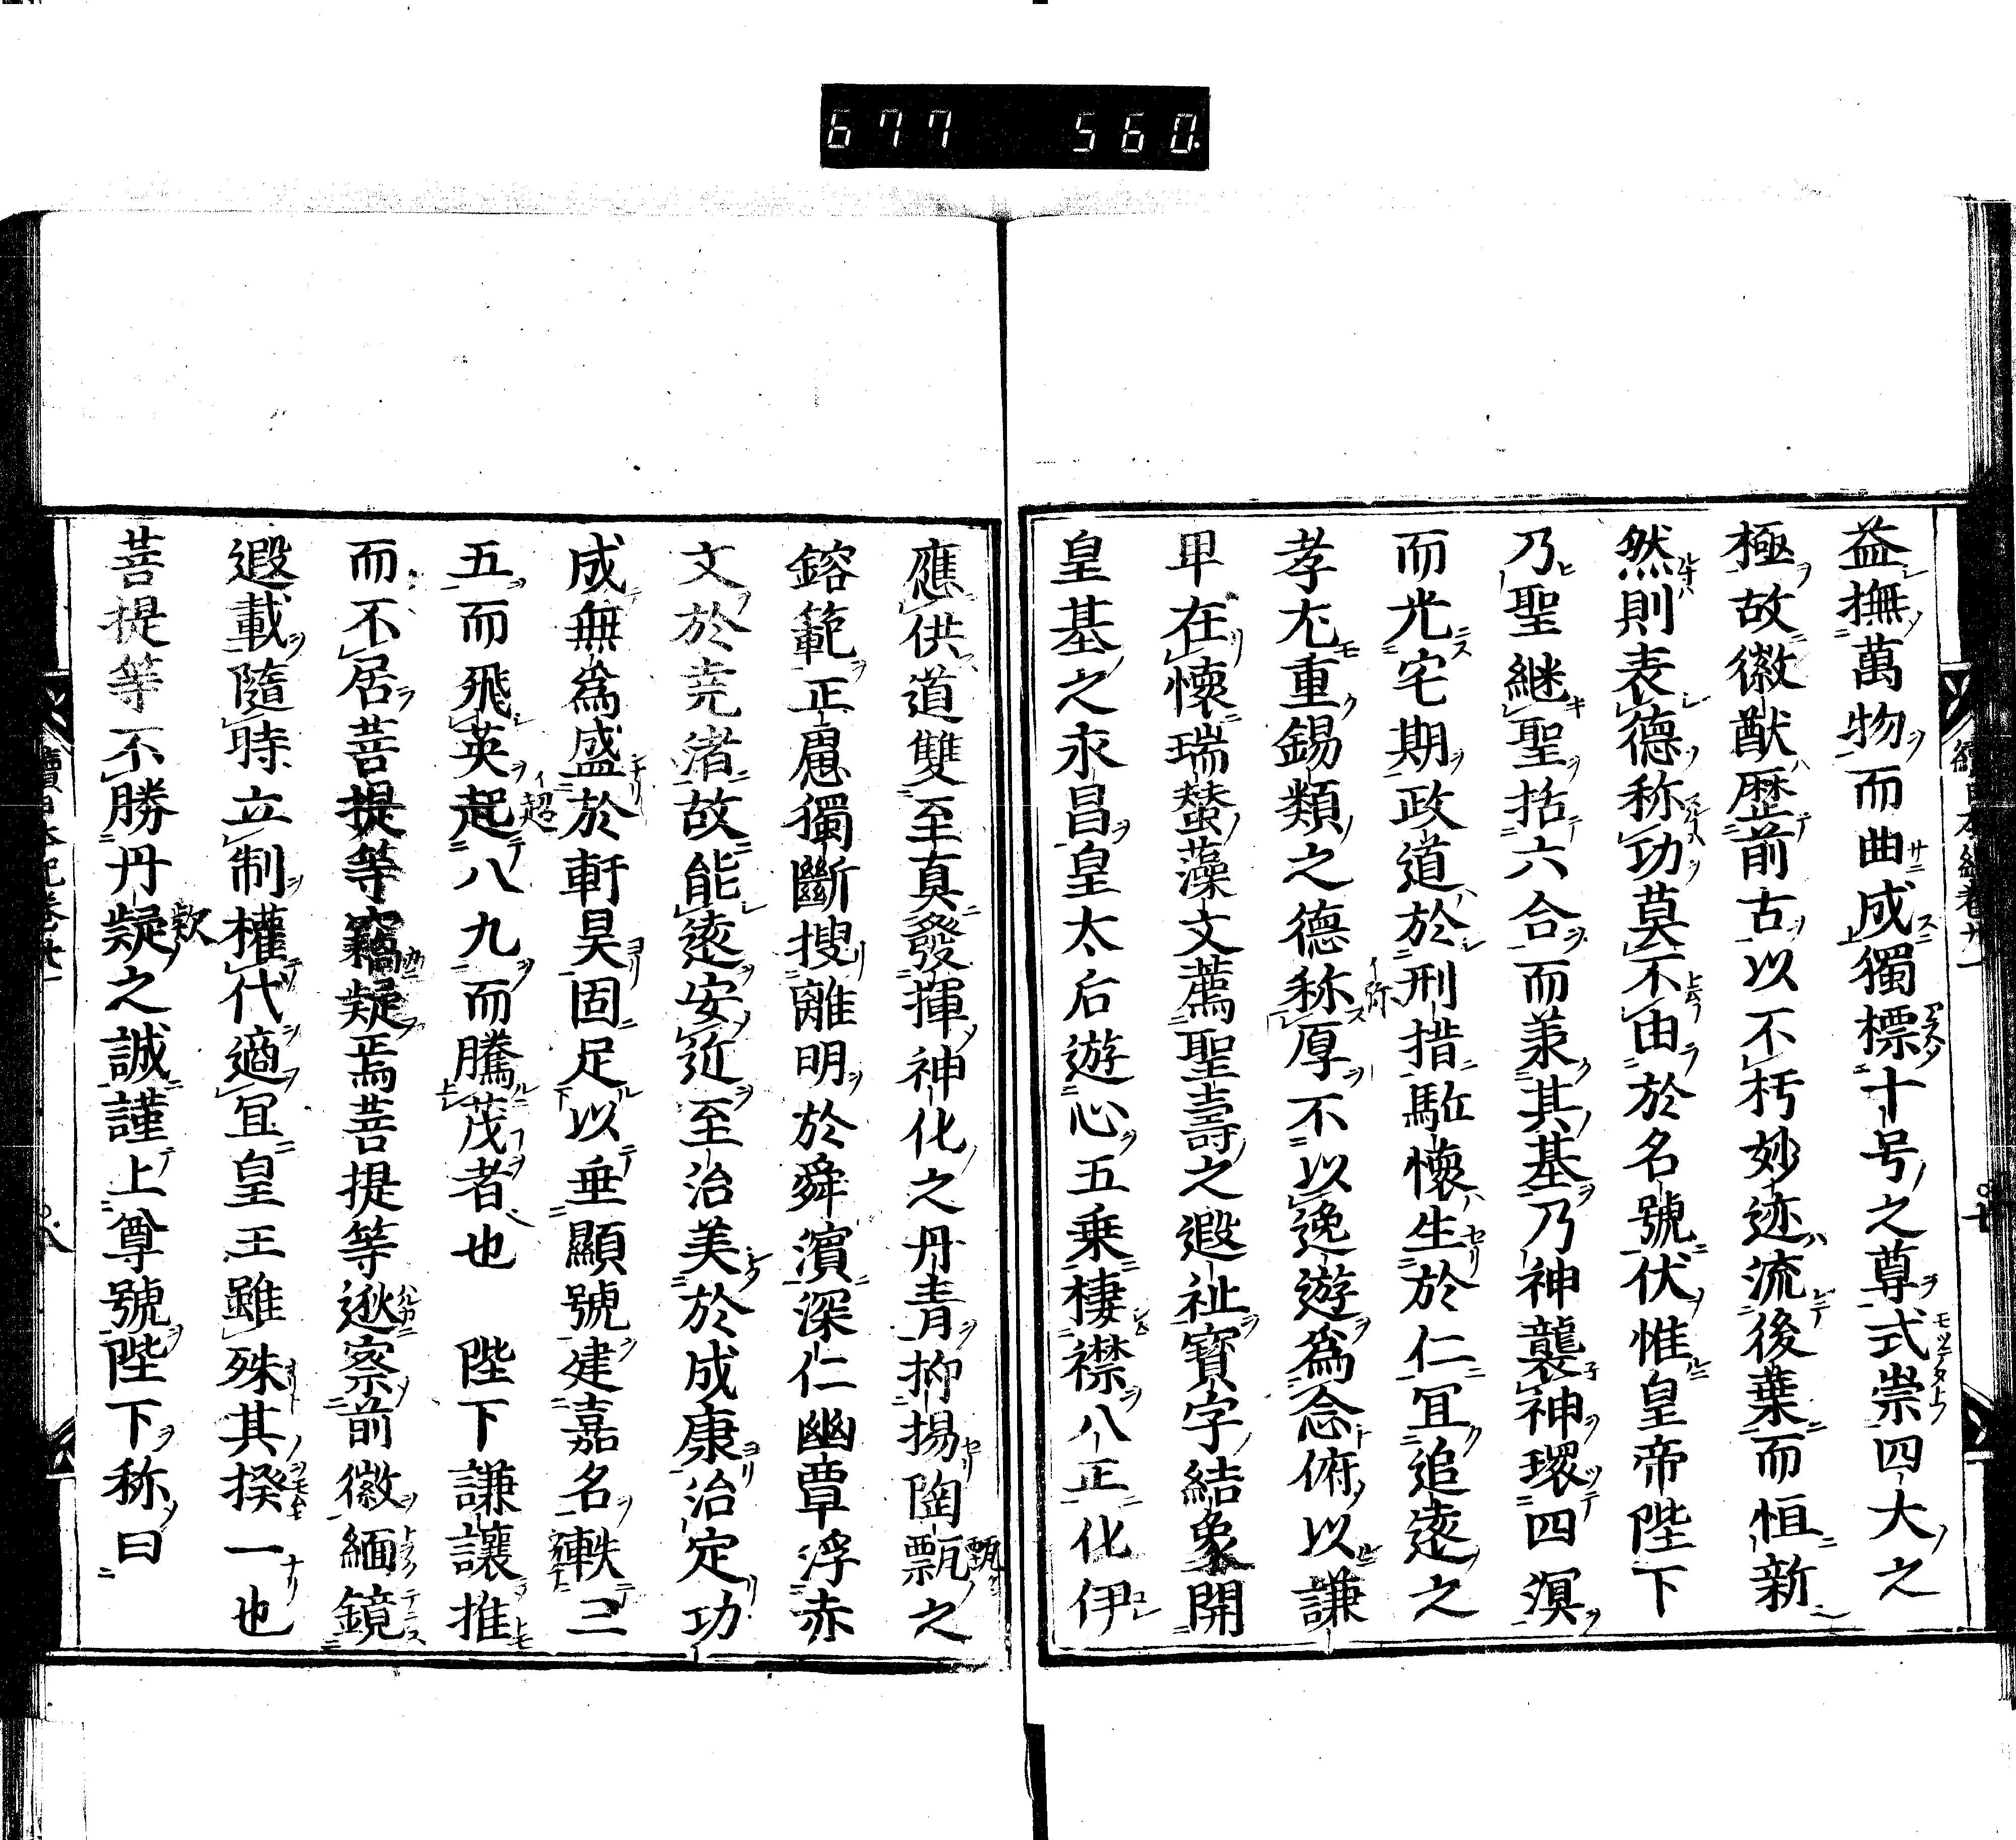 677 560.
益撫萬物而曲成獨標十号之尊式崇四大之
極故徽猷歴前古以不朽妙迹流後葉而恒新
然則表德称功莫不由於名號伏惟皇帝陛下
乃聖継聖括六合而兼其基乃神襲神環四溟
而光宅期政道於刑措駈懐生於仁冝追遠之
孝尤重錫類之德称厚不以逸遊為念俯以謙
卑在懐瑞蛬藻文薦聖壽之遐祉寳字結象開
皇基之永昌皇太后遊心五乗棲襟八正化伊
應供道雙至真發揮神化之丹青抑揚陶甄之
鎔範正慮獨斷搜離明於舜濱深仁幽覃浮赤
文於尭渚故能遠安近至治美於成康治定功
成無為盛於軒昊固足以垂顯號建嘉名軼三
五而飛英起八九而騰茂者也 陛下謙讓推
而不居菩提等竊疑焉菩提等逖察前徽緬鏡
遐載隨時立制權代適冝皇王雖殊其揆一也
菩提等不勝丹疑之誠謹上尊號陛下称曰